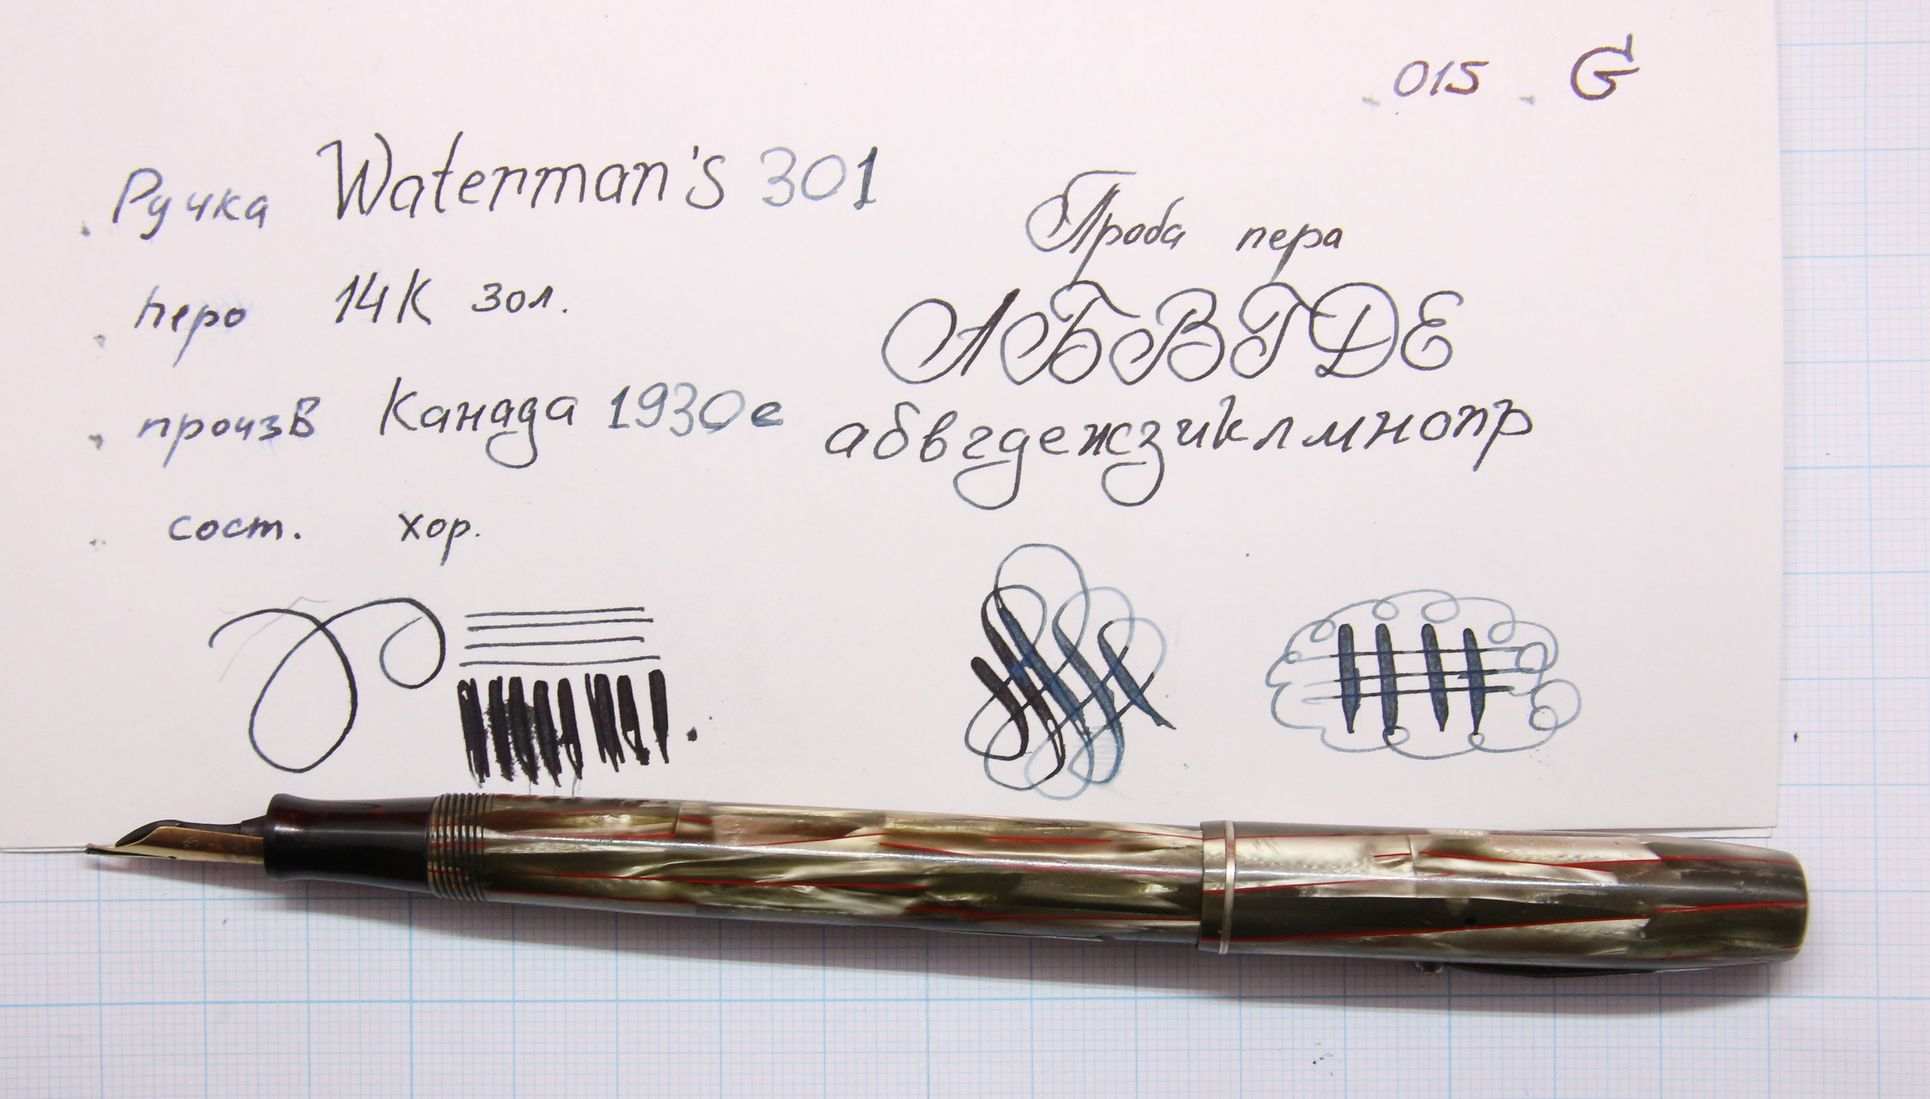 015 G
Ручка Waterman's 301
Проба пера
перо 14К зол.
АБВГДЕ
произв Канада 1930е
абвгдежзиклмнопр
сост. хор.